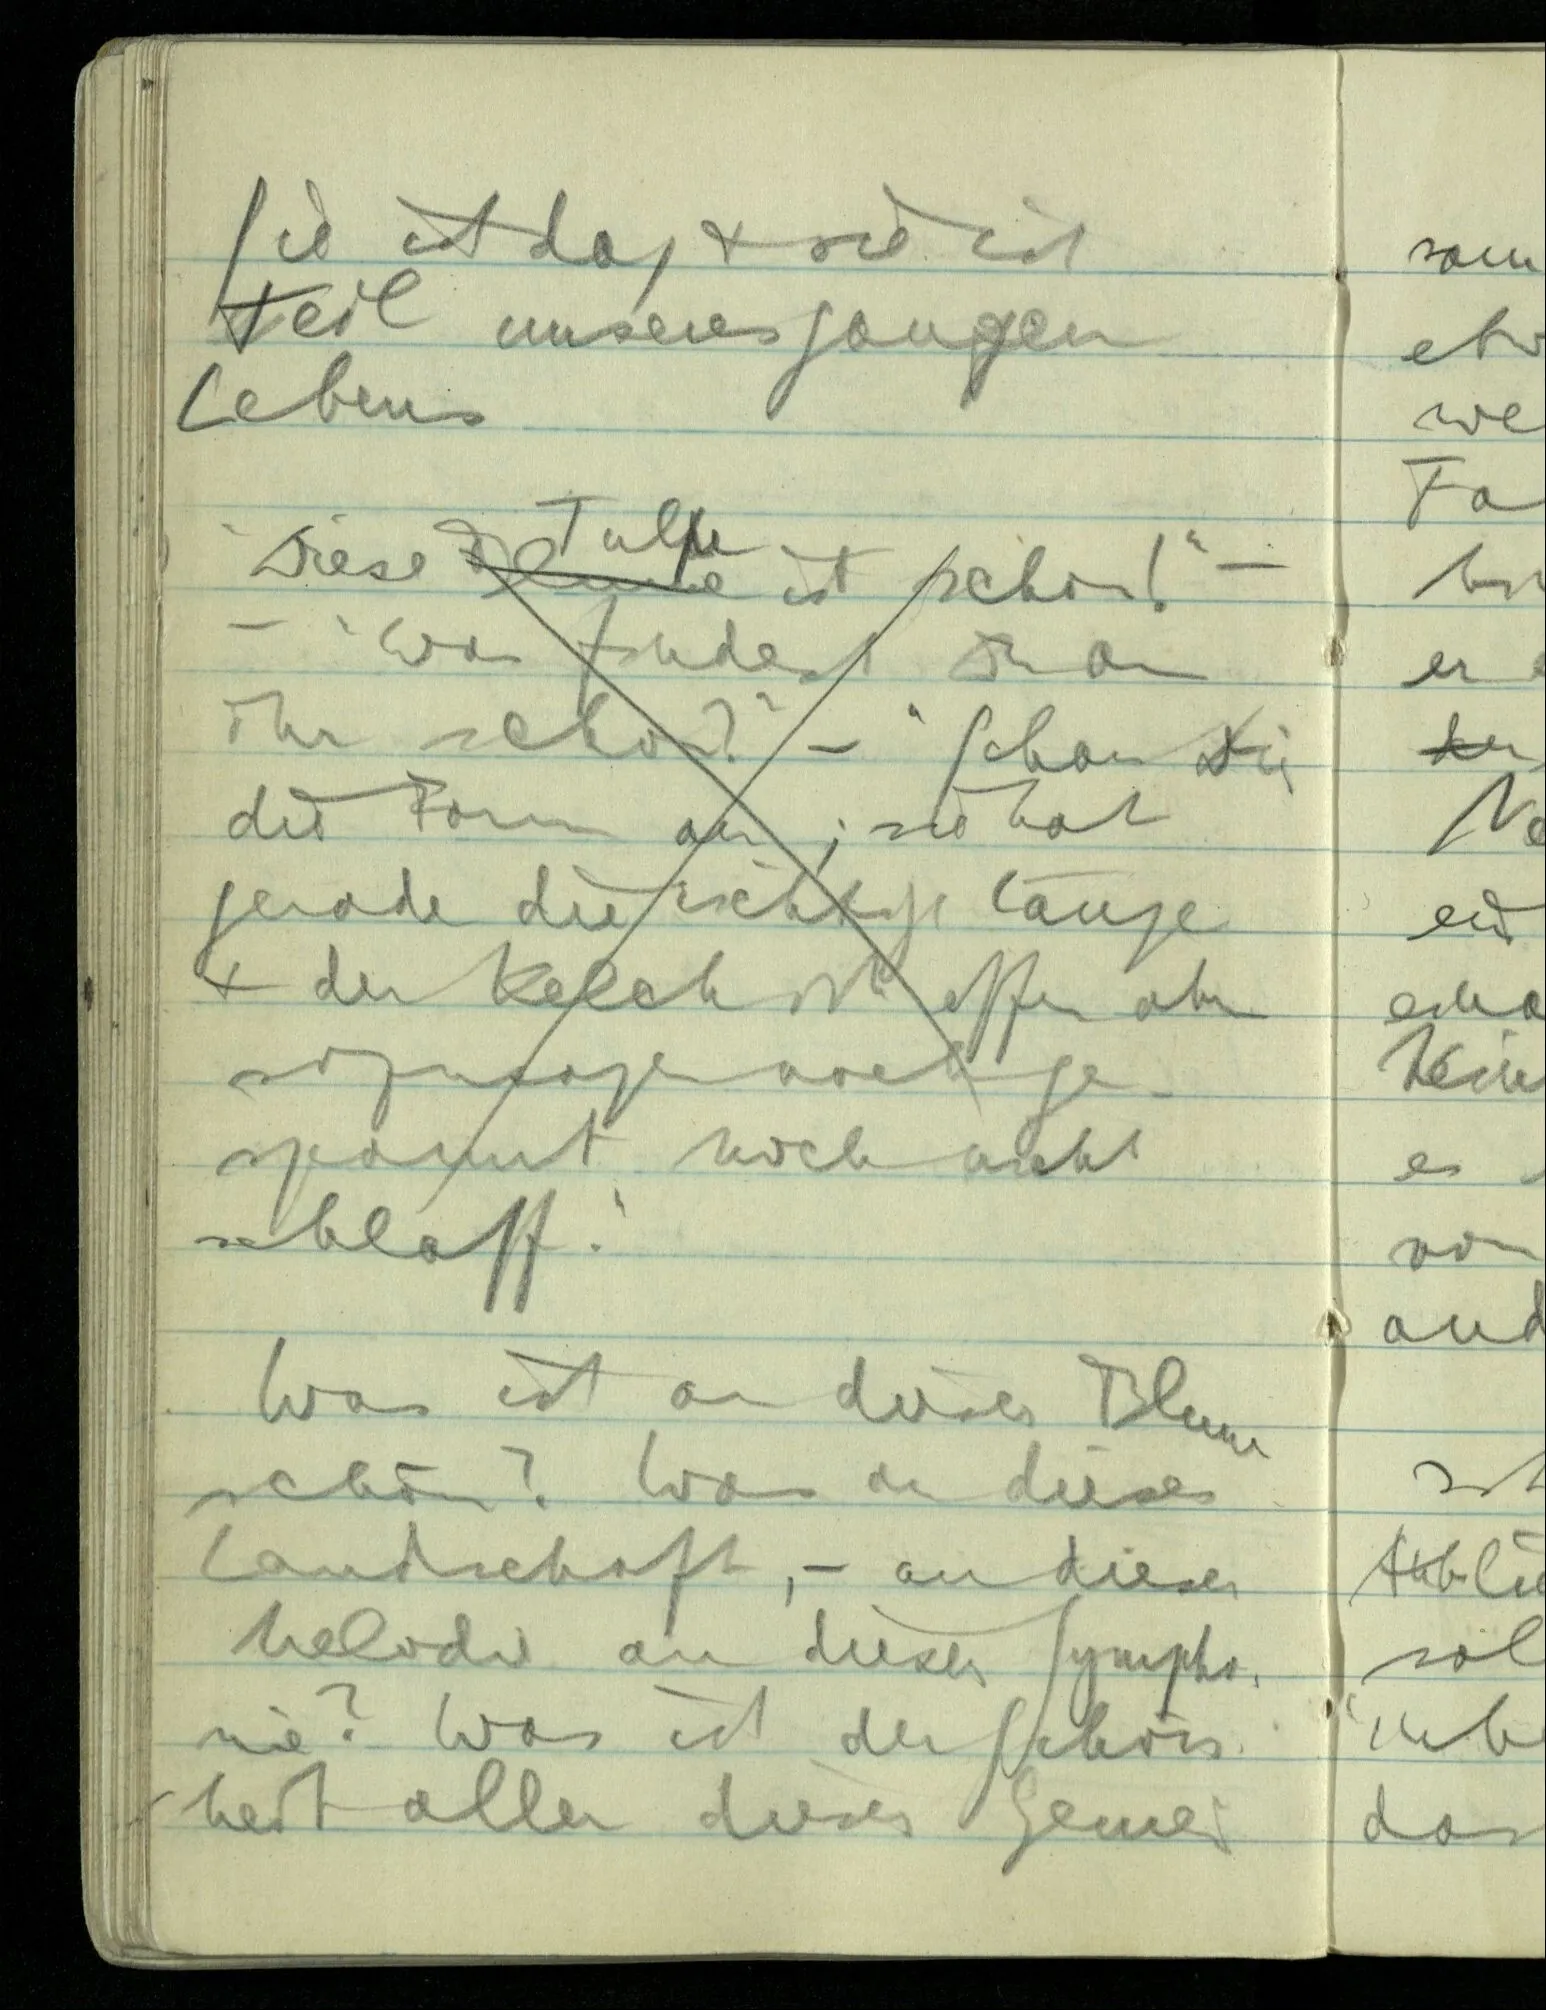 Sie ist da, & sie ist
Teil unseres ganzen
Lebens
Tulpe
"Diese Blume ist schön!" –
– "Was findest Du an
ihr schön?" – "Schau Dir
die Form an; sie hat
gerade die richtige Länge
& der Kelch ist offen aber
sozusagen noch ge-
spannt noch nicht
schlaff."
Was ist an dieser Blume
schön? Was an dieser
Landschaft, – an dieser
Melodie an dieser Sympho-
nie? Was ist der Schön-
heit aller dieser Gemei
sam
etw
we
Fa
er
No
es
von
and
sol
das